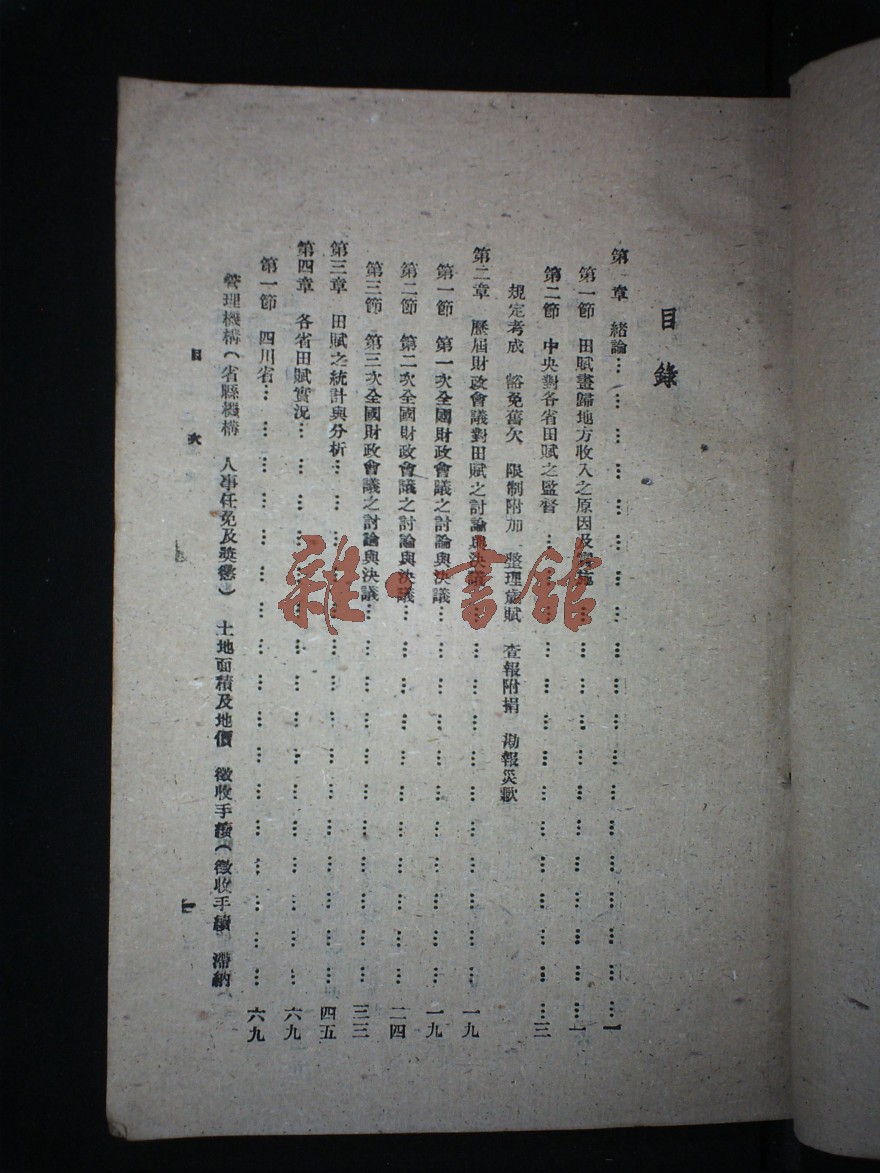 目錄
第一章 緒論……………………………………………一
第一節 田賦畫歸地方收入之原因及實施……………………………一
第二節 中央對各省田賦之監督……………………………三
規定考成 豁免舊欠 限制附加 整理 賦 查報附捐 勘報災歉
第二章 歷屆財政會議對田賦之討論與決議……………………………一九
第一節 第一次全國財政會議之討論與決議……………………………一九
第二節 第二次全國財政會議之討論與決議……………………………二四
第三節 第三次全國財政會議之討論與決議……………………………三三
第三章 田賦之統計與分析……………………………四五
第四章 各省田賦實況……………………………六九
第一節 四川省……………………………六九
管理機構(省縣機構 人事任免及獎懲) 土地面積及地價 徵收手續(徵收手續 滯納
目次
一
雜·書館